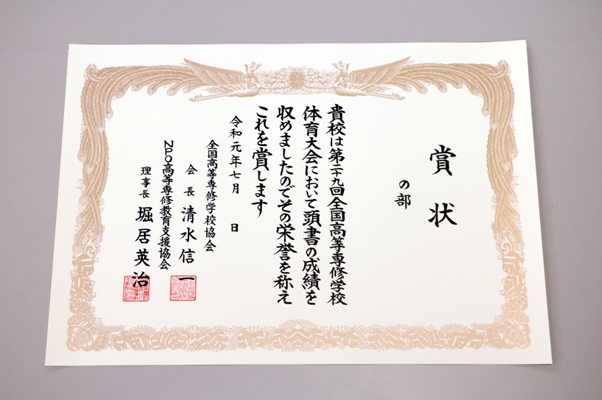 賞状
の部
貴校は第二十九回全国高等専修学校
体育大会において頭書の成績を
収めましたのでその栄誉を称え
これを賞します
令和元年七月　日
全国高等専修学校協会
会長　清水信一
NPO高等専修教育支援協会
理事長　堀居英治